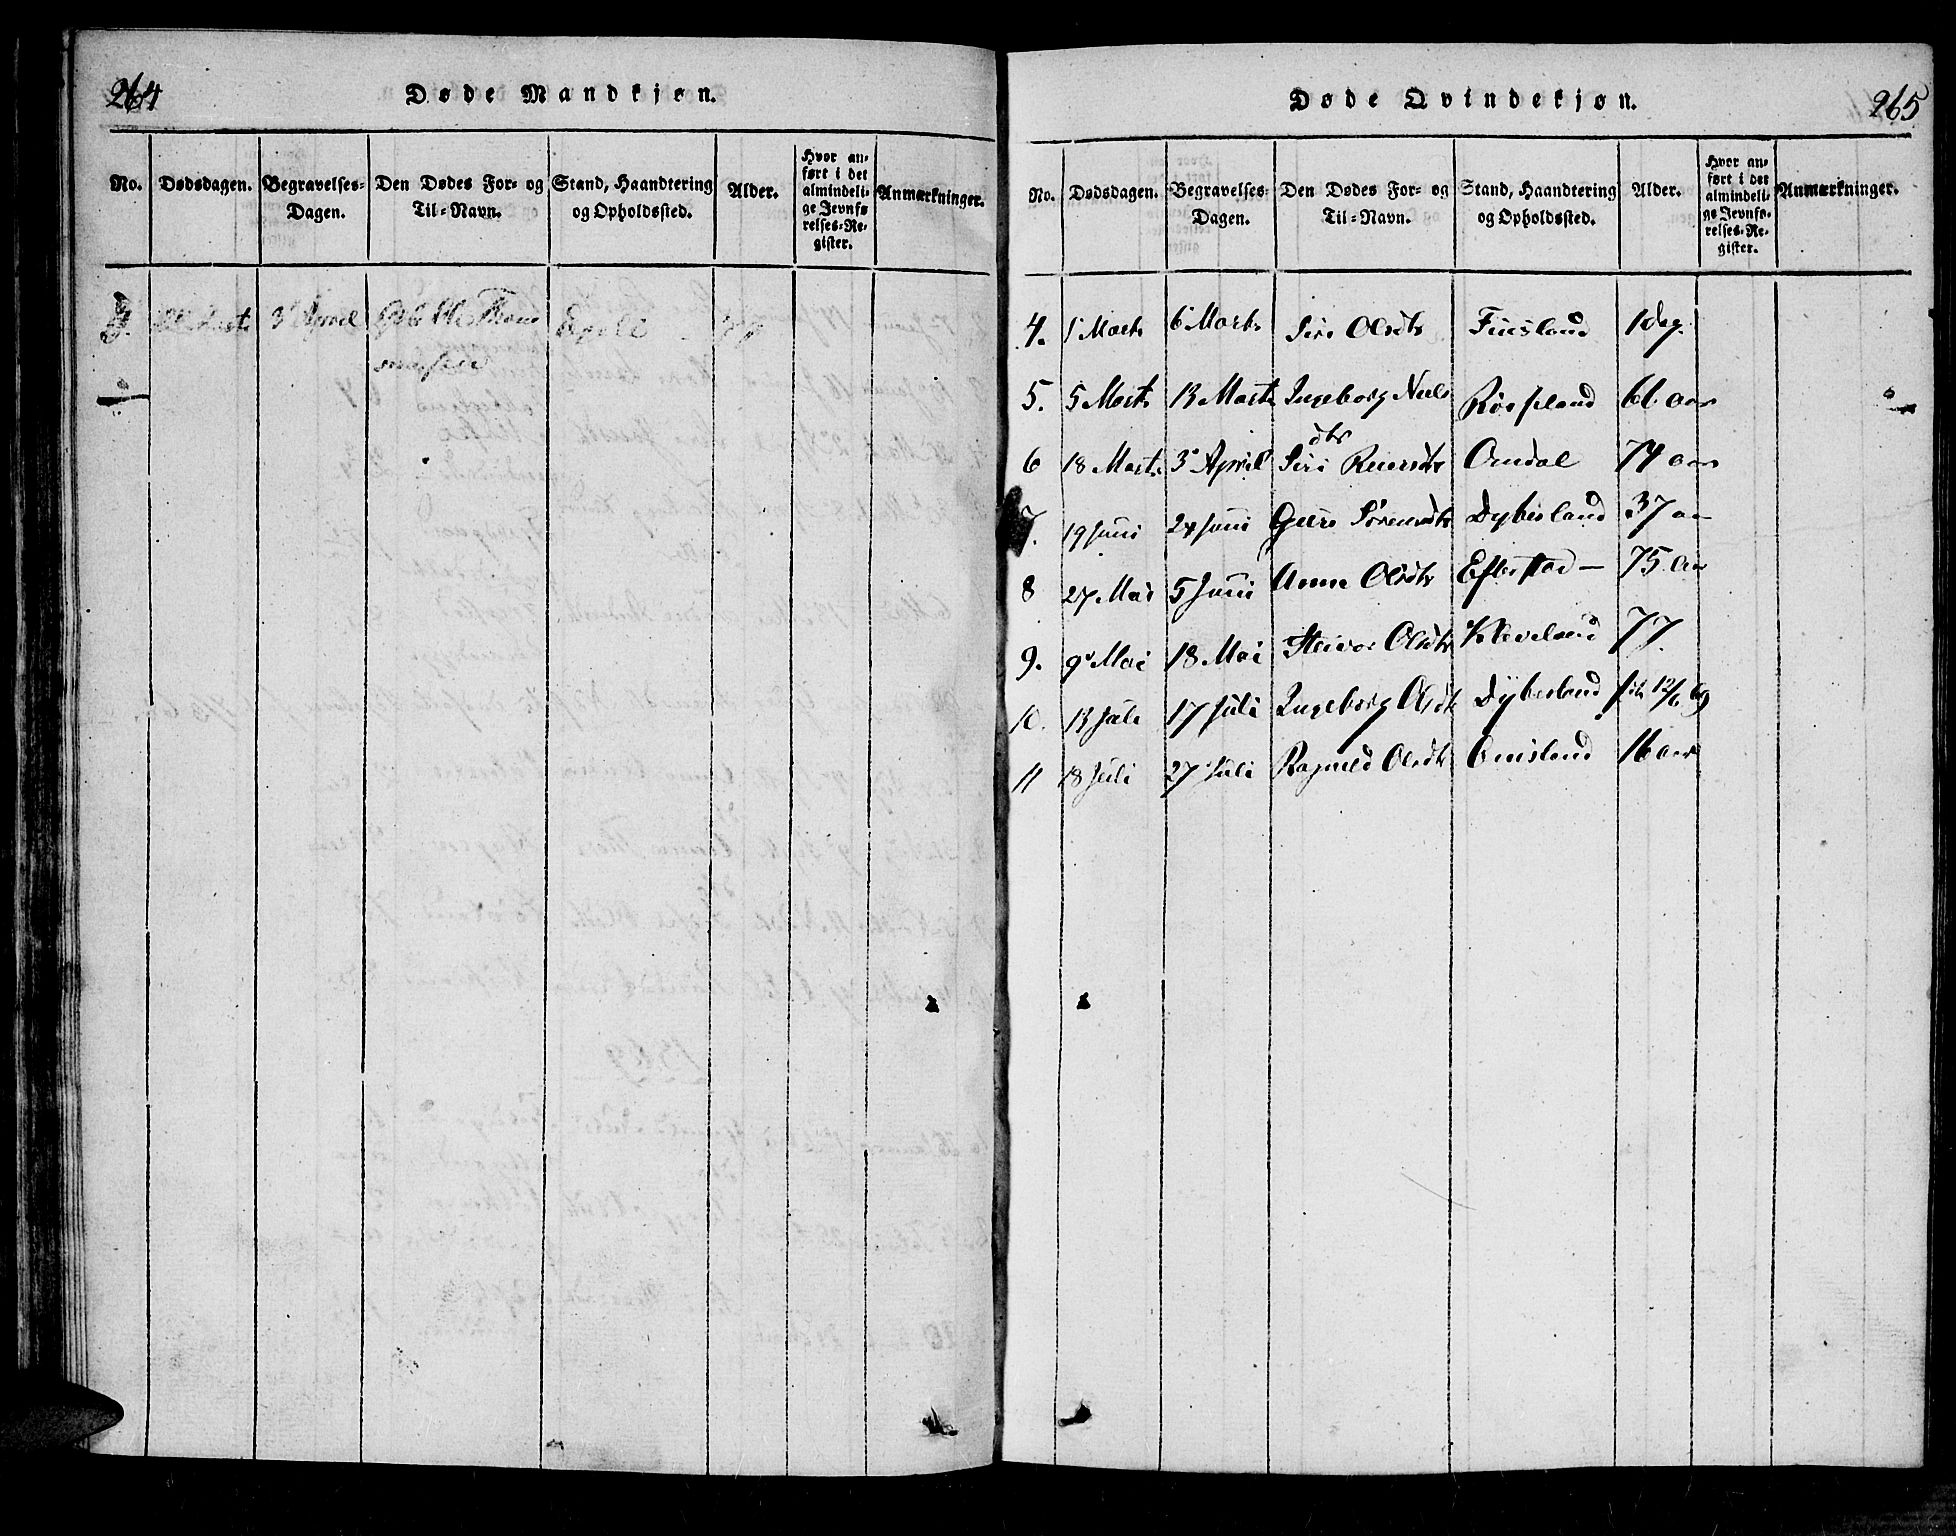 264
Døde Mandkjøn.
No. Dødsdagen. Begravelses-Dagen. Den Dødes For- og Til-Navn. Stand, Haandtering og Opholdssted. Alder. Hvor anført i det almindelige Jevnførelses-Register. Anmærkninger.
3 April
265
Døde Qvindekjøn.
No. Dødsdagen. Begravelses-Dagen. Den Dødes For- og Til-Navn. Stand, Haandtering og Opholdssted. Alder. Hvor anført i det almindelige Jevnførelses-Register. Anmærkninger.
4. 1 Marts 6 Marts Siri Olsdtr Fuesland 1 dag.
5. 5 Marts 13 Marts Ingeborg Niels
dtr 66 aar
6 18 Marts 3 April Siri Reiersdtr Omdal 74 aar
7. 19 Juni 24 Juni Sørensdtr Dybesland 37 aa
8 27 Mai 5 Juni Anne Olsdtr Eftestad — 75 aar
9. 9 Mai 18 Mai Steivor Olsdtr Kleveland 77
10. 13 Juli 17 Juli Ingeborg Olsdtr Dybesland 12/6 69
11 18 Juli 27 Juli Ragnild Olsdtr Omsland 16 aar